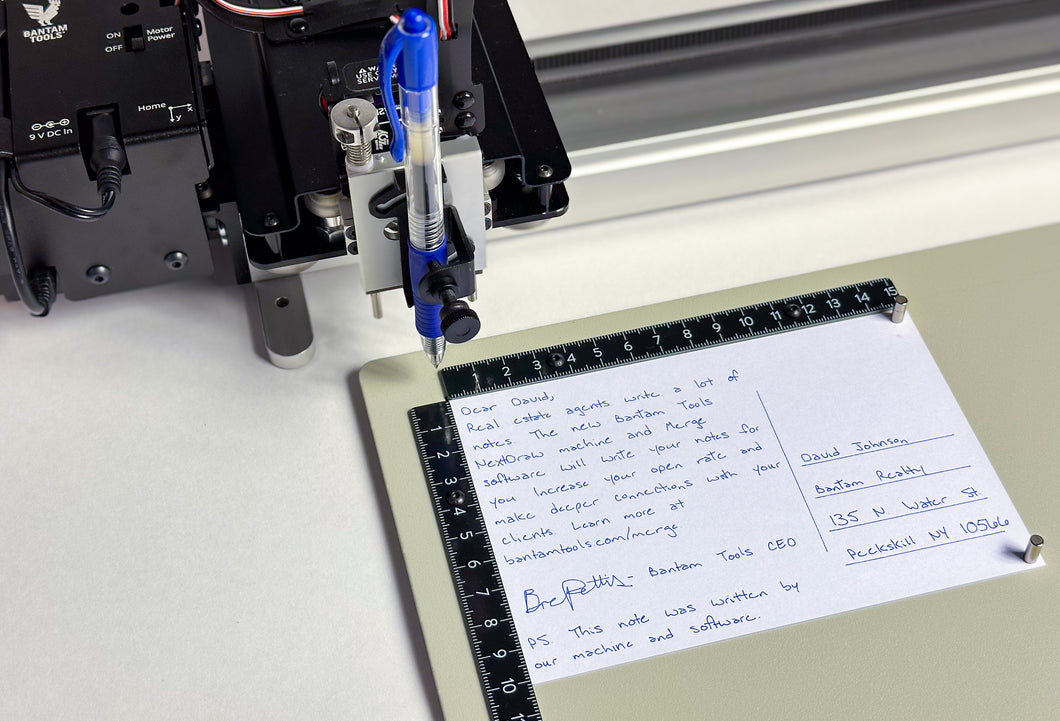 BANTAM
TOOLS
ON
OFF
Motor
Power
Home
x
y
9 V DC In
1 2 3 4 5 6 7 8 9 10 11 12 13 14 15
1
2
3
4
5
6
7
8
9
10
11
Dear David,
Real estate agents write a lot of
notes. The new Bantam Tools
NextDraw machine and Merge
software will write your notes for
you Increase your open rate and
make deeper connections with your
clients. Learn more at
bantamtools.com/merge
Bre Pettis - Bantam Tools CEO
PS This note was written by
our machine and software.
David Johnson
Bantam Realty
135 N. Water St
Peekskill NY 10566